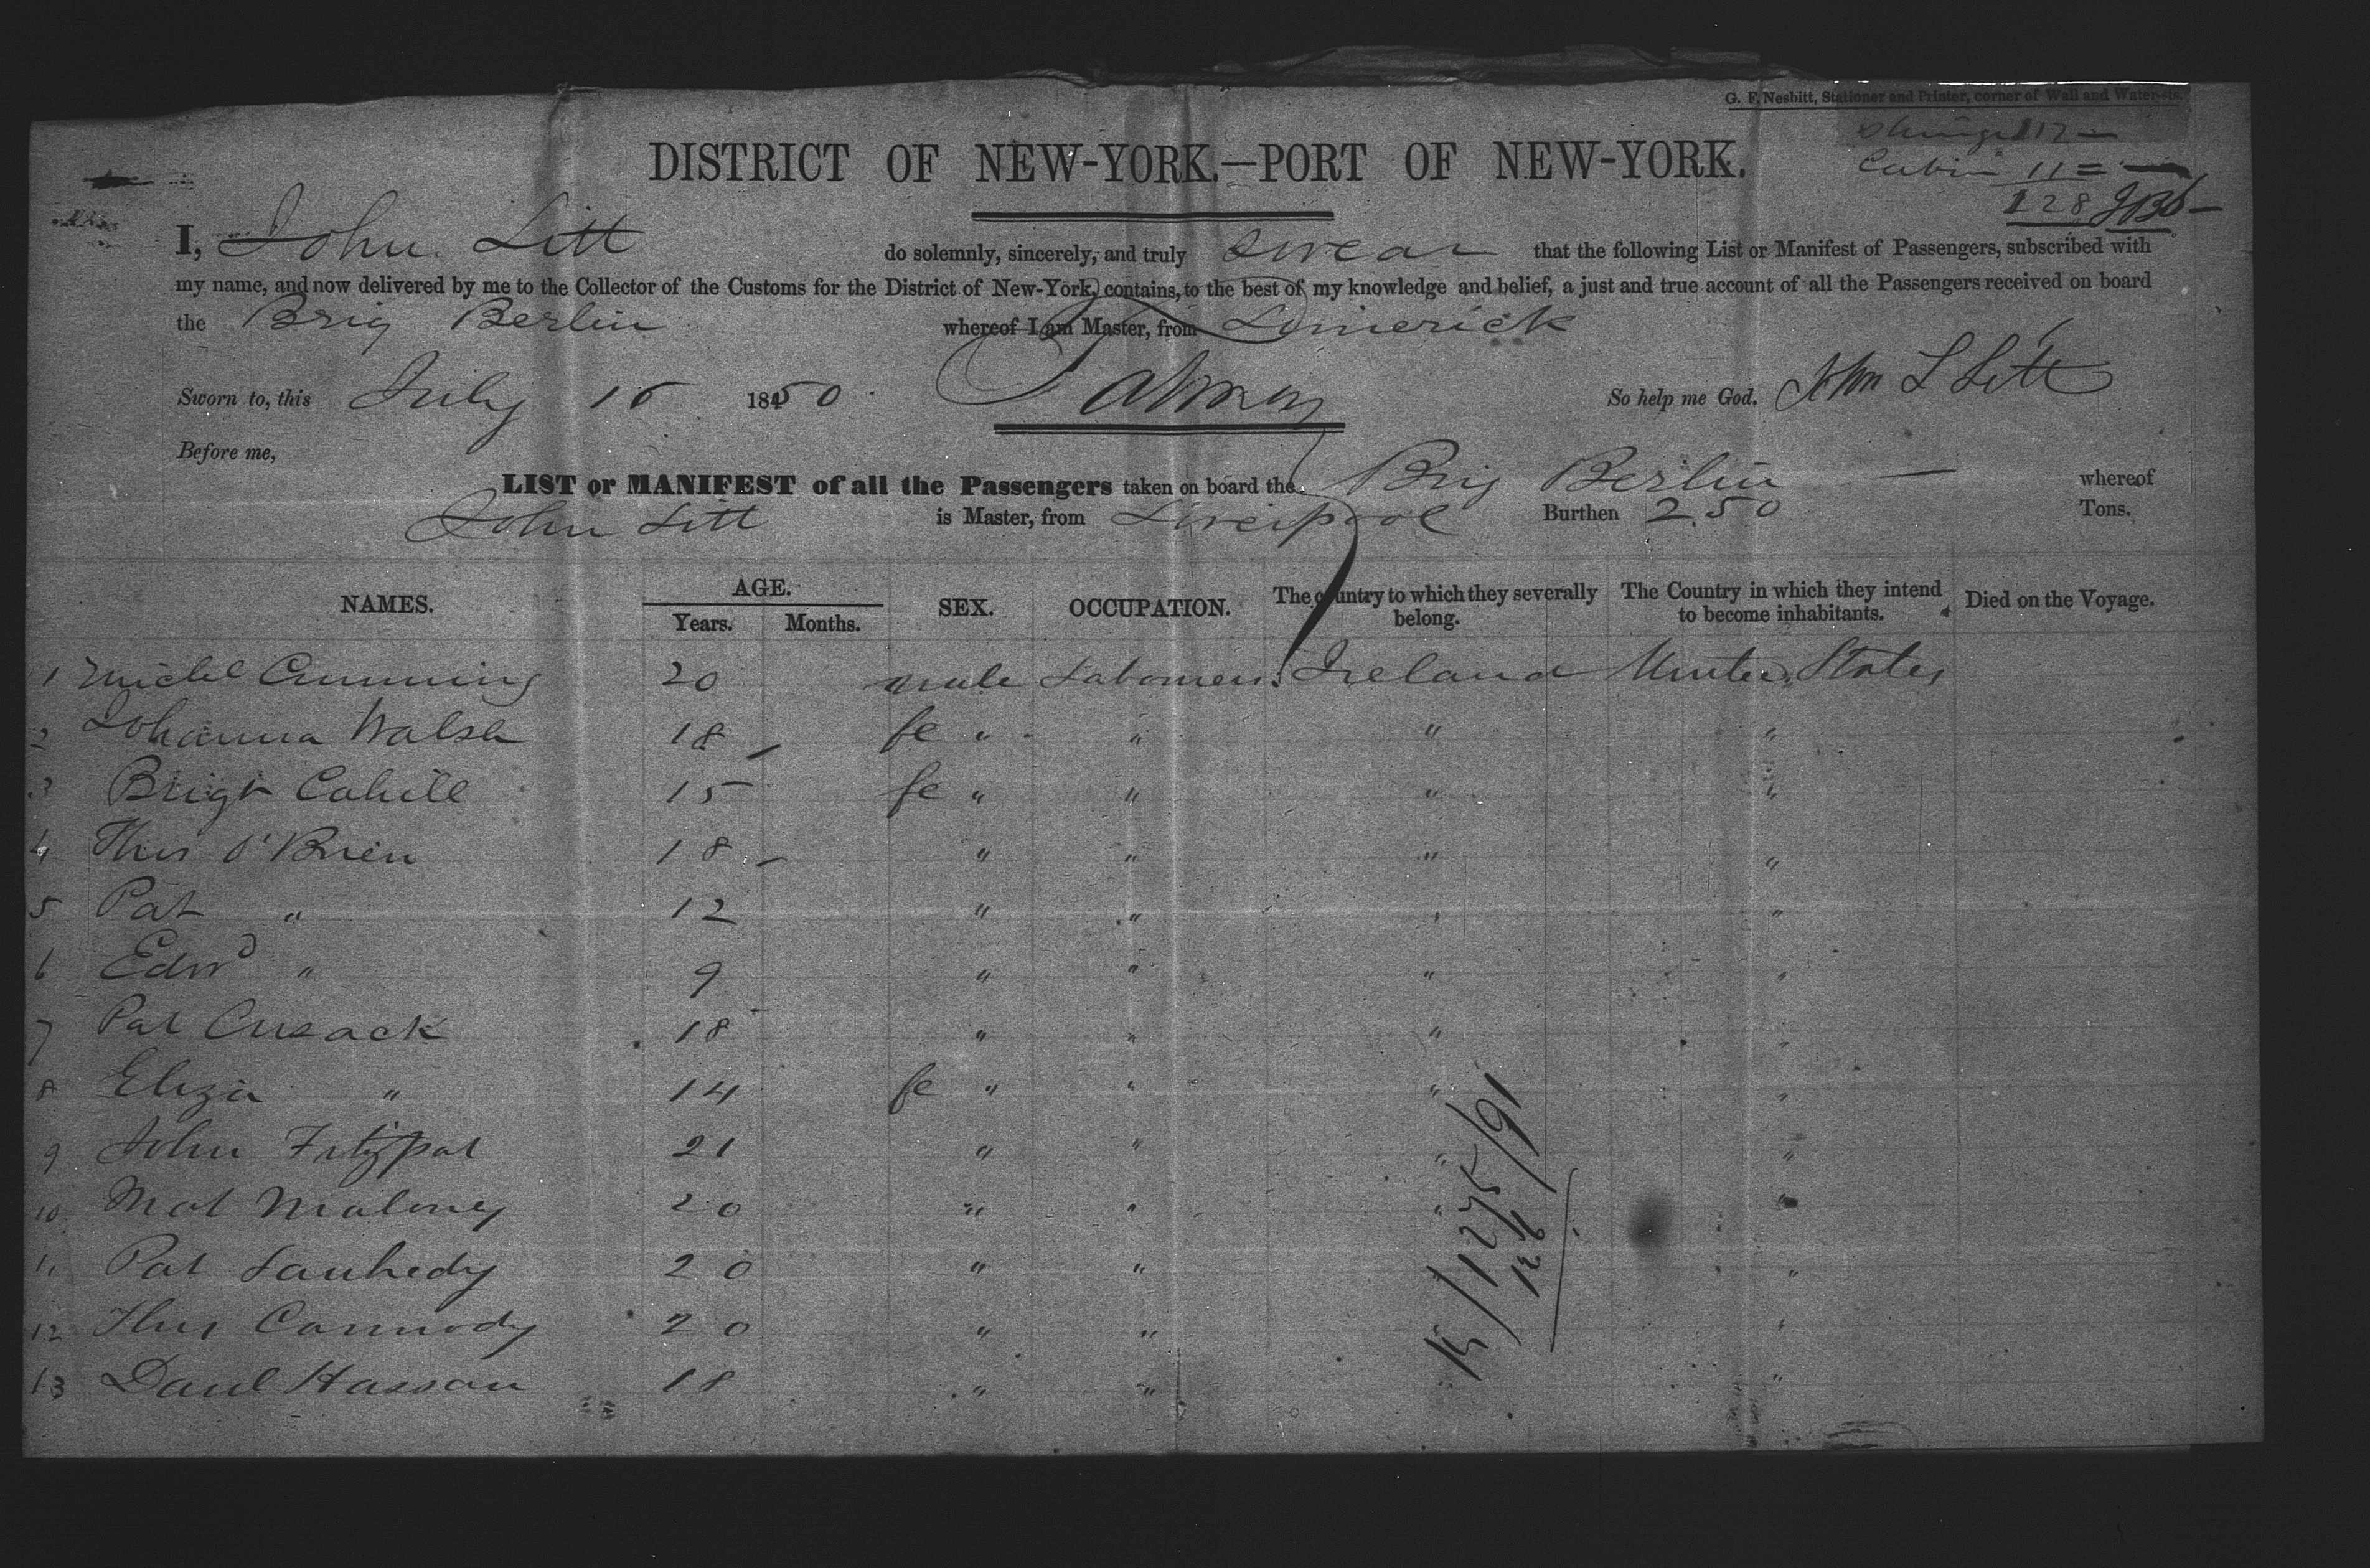 G. F. Nesbitt, Stationer and Printer, corner of Wall and Water-sts.
117
Cabin 11
128
DISTRICT OF NEW-YORK.—PORT OF NEW-YORK.
I, John Litt do solemnly, sincerely, and truly swear that the following List or Manifest of Passengers, subscribed with
my name, and now delivered by me to the Collector of the Customs for the District of New-York, contains, to the best of my knowledge and belief, a just and true account of all the Passengers received on board
the Brig Berlin whereof I am Master, from Limerick
Sworn to, this July 1850 So help me God. John L Litt
Before me,
LIST or MANIFEST of all the Passengers taken on board the Brig Berlin — whereof
John Litt is Master, from Liverpool Burthen 250 Tons.
NAMES. AGE. Years. Months. SEX. OCCUPATION. The Country to which they severally belong. The Country in which they intend to become inhabitants. Died on the Voyage.
1 Michl Cumming 20 male Ireland United States
2 Johanna Walsh 18 fe " " " "
3 Brigt Cahill 15 fe " " " "
4 Thos O'Brien 18 " " " "
5 Pat " 12 " " " "
6 Edwd " 9 " " " "
7 Pat Cusack 18 " " " "
8 Eliza " 14 fe " " " "
9 John Fitzpat 21 " " " "
10 Mat Maloney 20 " " " "
11 Pat 20 " " " "
12 Thos Connody 20 " " "
13 Danl Hassan 18 " " "